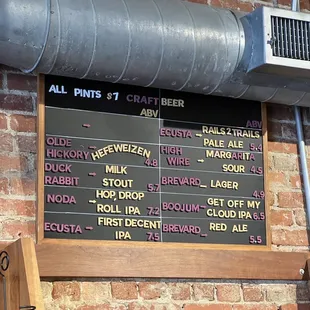 ALL PINTS $7 CRAFT BEER
ABV
OLDE HICKORY
HEFEWEIZEN 4.8
DUCK RABBIT
MILK STOUT 5.7
NODA
HOP, DROP ROLL IPA 7.2
ECUSTA
FIRST DECENT IPA 7.5
ABV
ECUSTA
RAILS 2 TRAILS PALE ALE 5.4
HIGH WIRE
MARGARITA SOUR 4.5
BREVARD LAGER 4.9
BOOJUM
GET OFF MY CLOUD IPA 6.5
BREVARD RED ALE 5.5